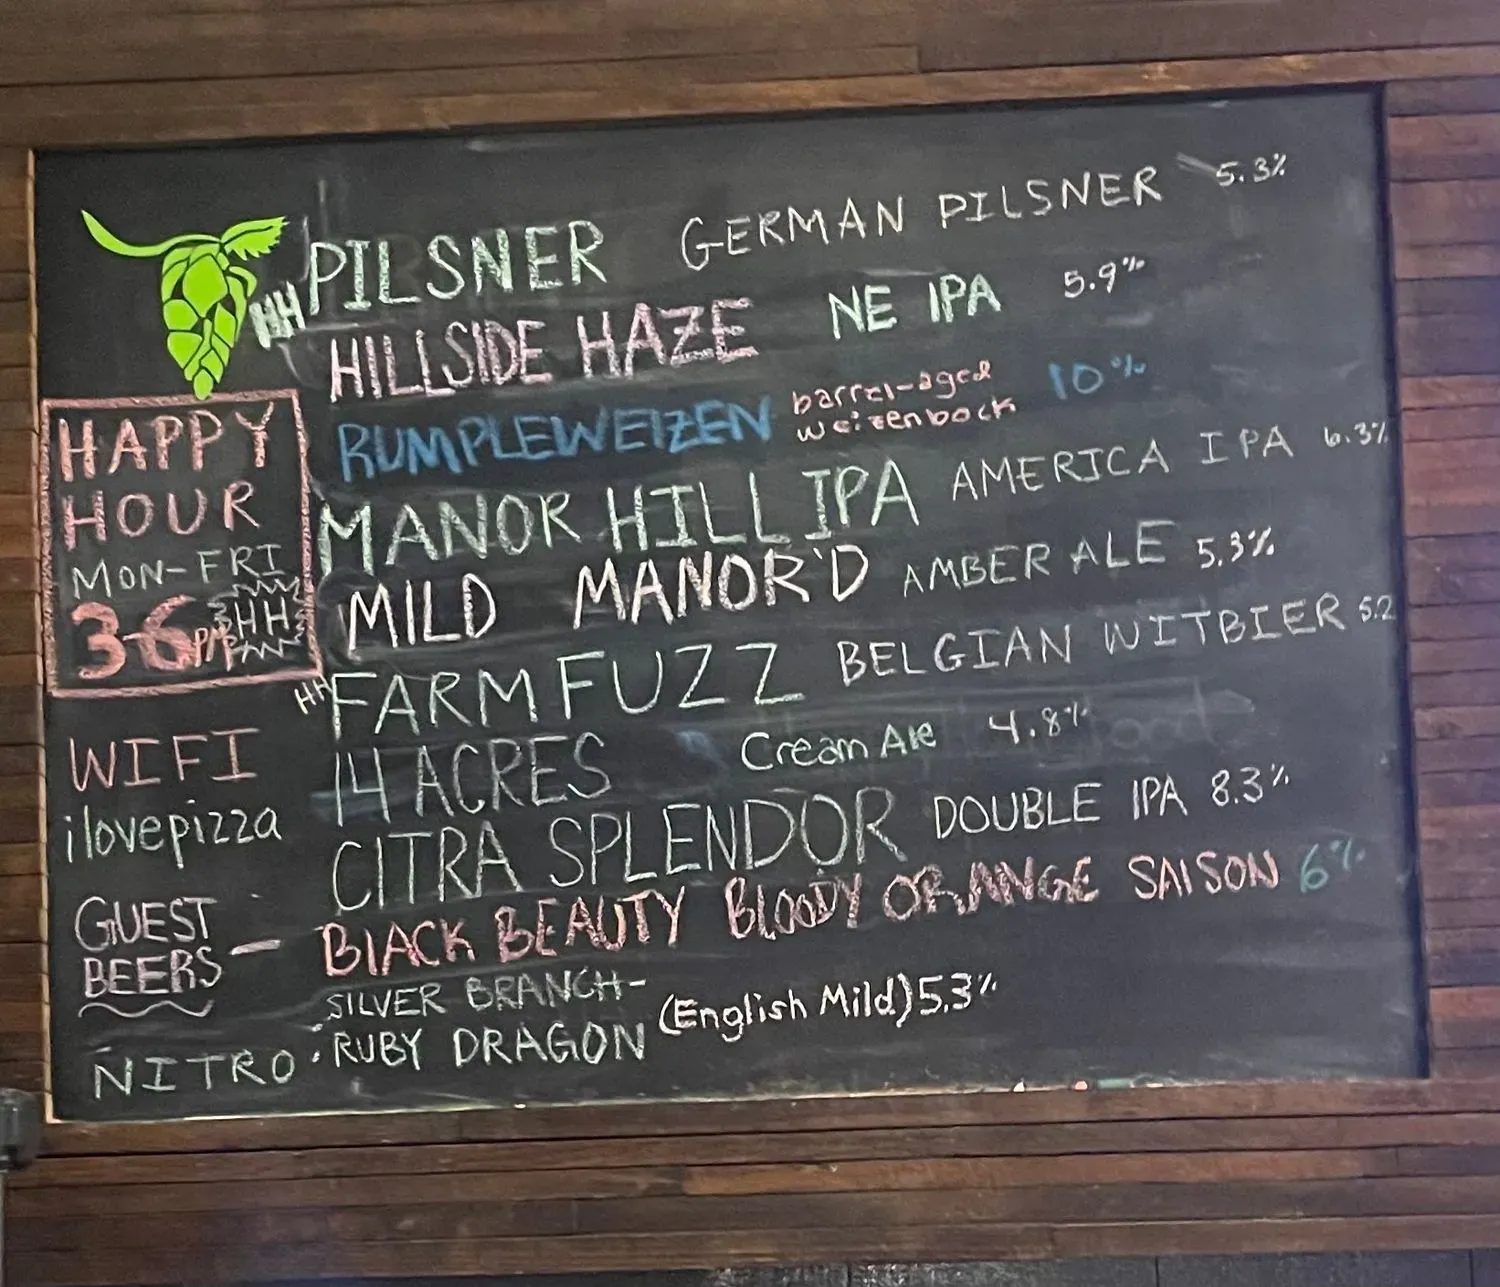 HH PILSNER GERMAN PILSNER 5.3%
HILLSIDE HAZE NE IPA 5.9%
RUMPLEWEIZEN barrel-aged weizenbock 10%
MANOR HILL IPA AMERICA IPA 6.3%
MILD MANOR'D AMBER ALE 5.3%
HH FARM FUZZ BELGIAN WITBIER 5.2
14 ACRES Cream Ale 4.8%
CITRA SPLENDOR DOUBLE IPA 8.3%
BLACK BEAUTY BLOODY ORANGE SAISON 6%
SILVER BRANCH-
RUBY DRAGON (English Mild) 5.3%
HAPPY
HOUR
MON-FRI
3-6PM HH
WIFI
ilovepizza
GUEST
BEERS —
NITRO: